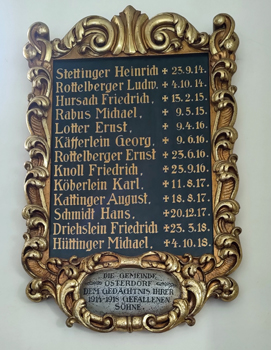 Stettinger Heinrich ✝ 25.9.14.
Rottelberger Ludw. ✝ 4.10.14.
Hursach Friedrich, ✝ 15.2.15.
Rabus Michael, ✝ 9.5.15.
Lotter Ernst, ✝ 9.4.16.
Käfferlein Georg, ✝ 9.6.16.
Rottelberger Ernst ✝ 23.6.16.
Knoll Friedrich, ✝ 25.9.16.
Köberlein Karl, ✝ 11.8.17.
Kattinger August, ✝ 18.8.17.
Schmidt Hans, ✝ 20.12.17.
Driehslein Friedrich ✝ 23.3.18.
Hüttinger Michael, ✝ 4.10.18.
DIE GEMEINDE
OSTERDORF
DEM GEDÄCHTNIS IHRER
1914-1918 GEFALLENEN
SÖHNE.